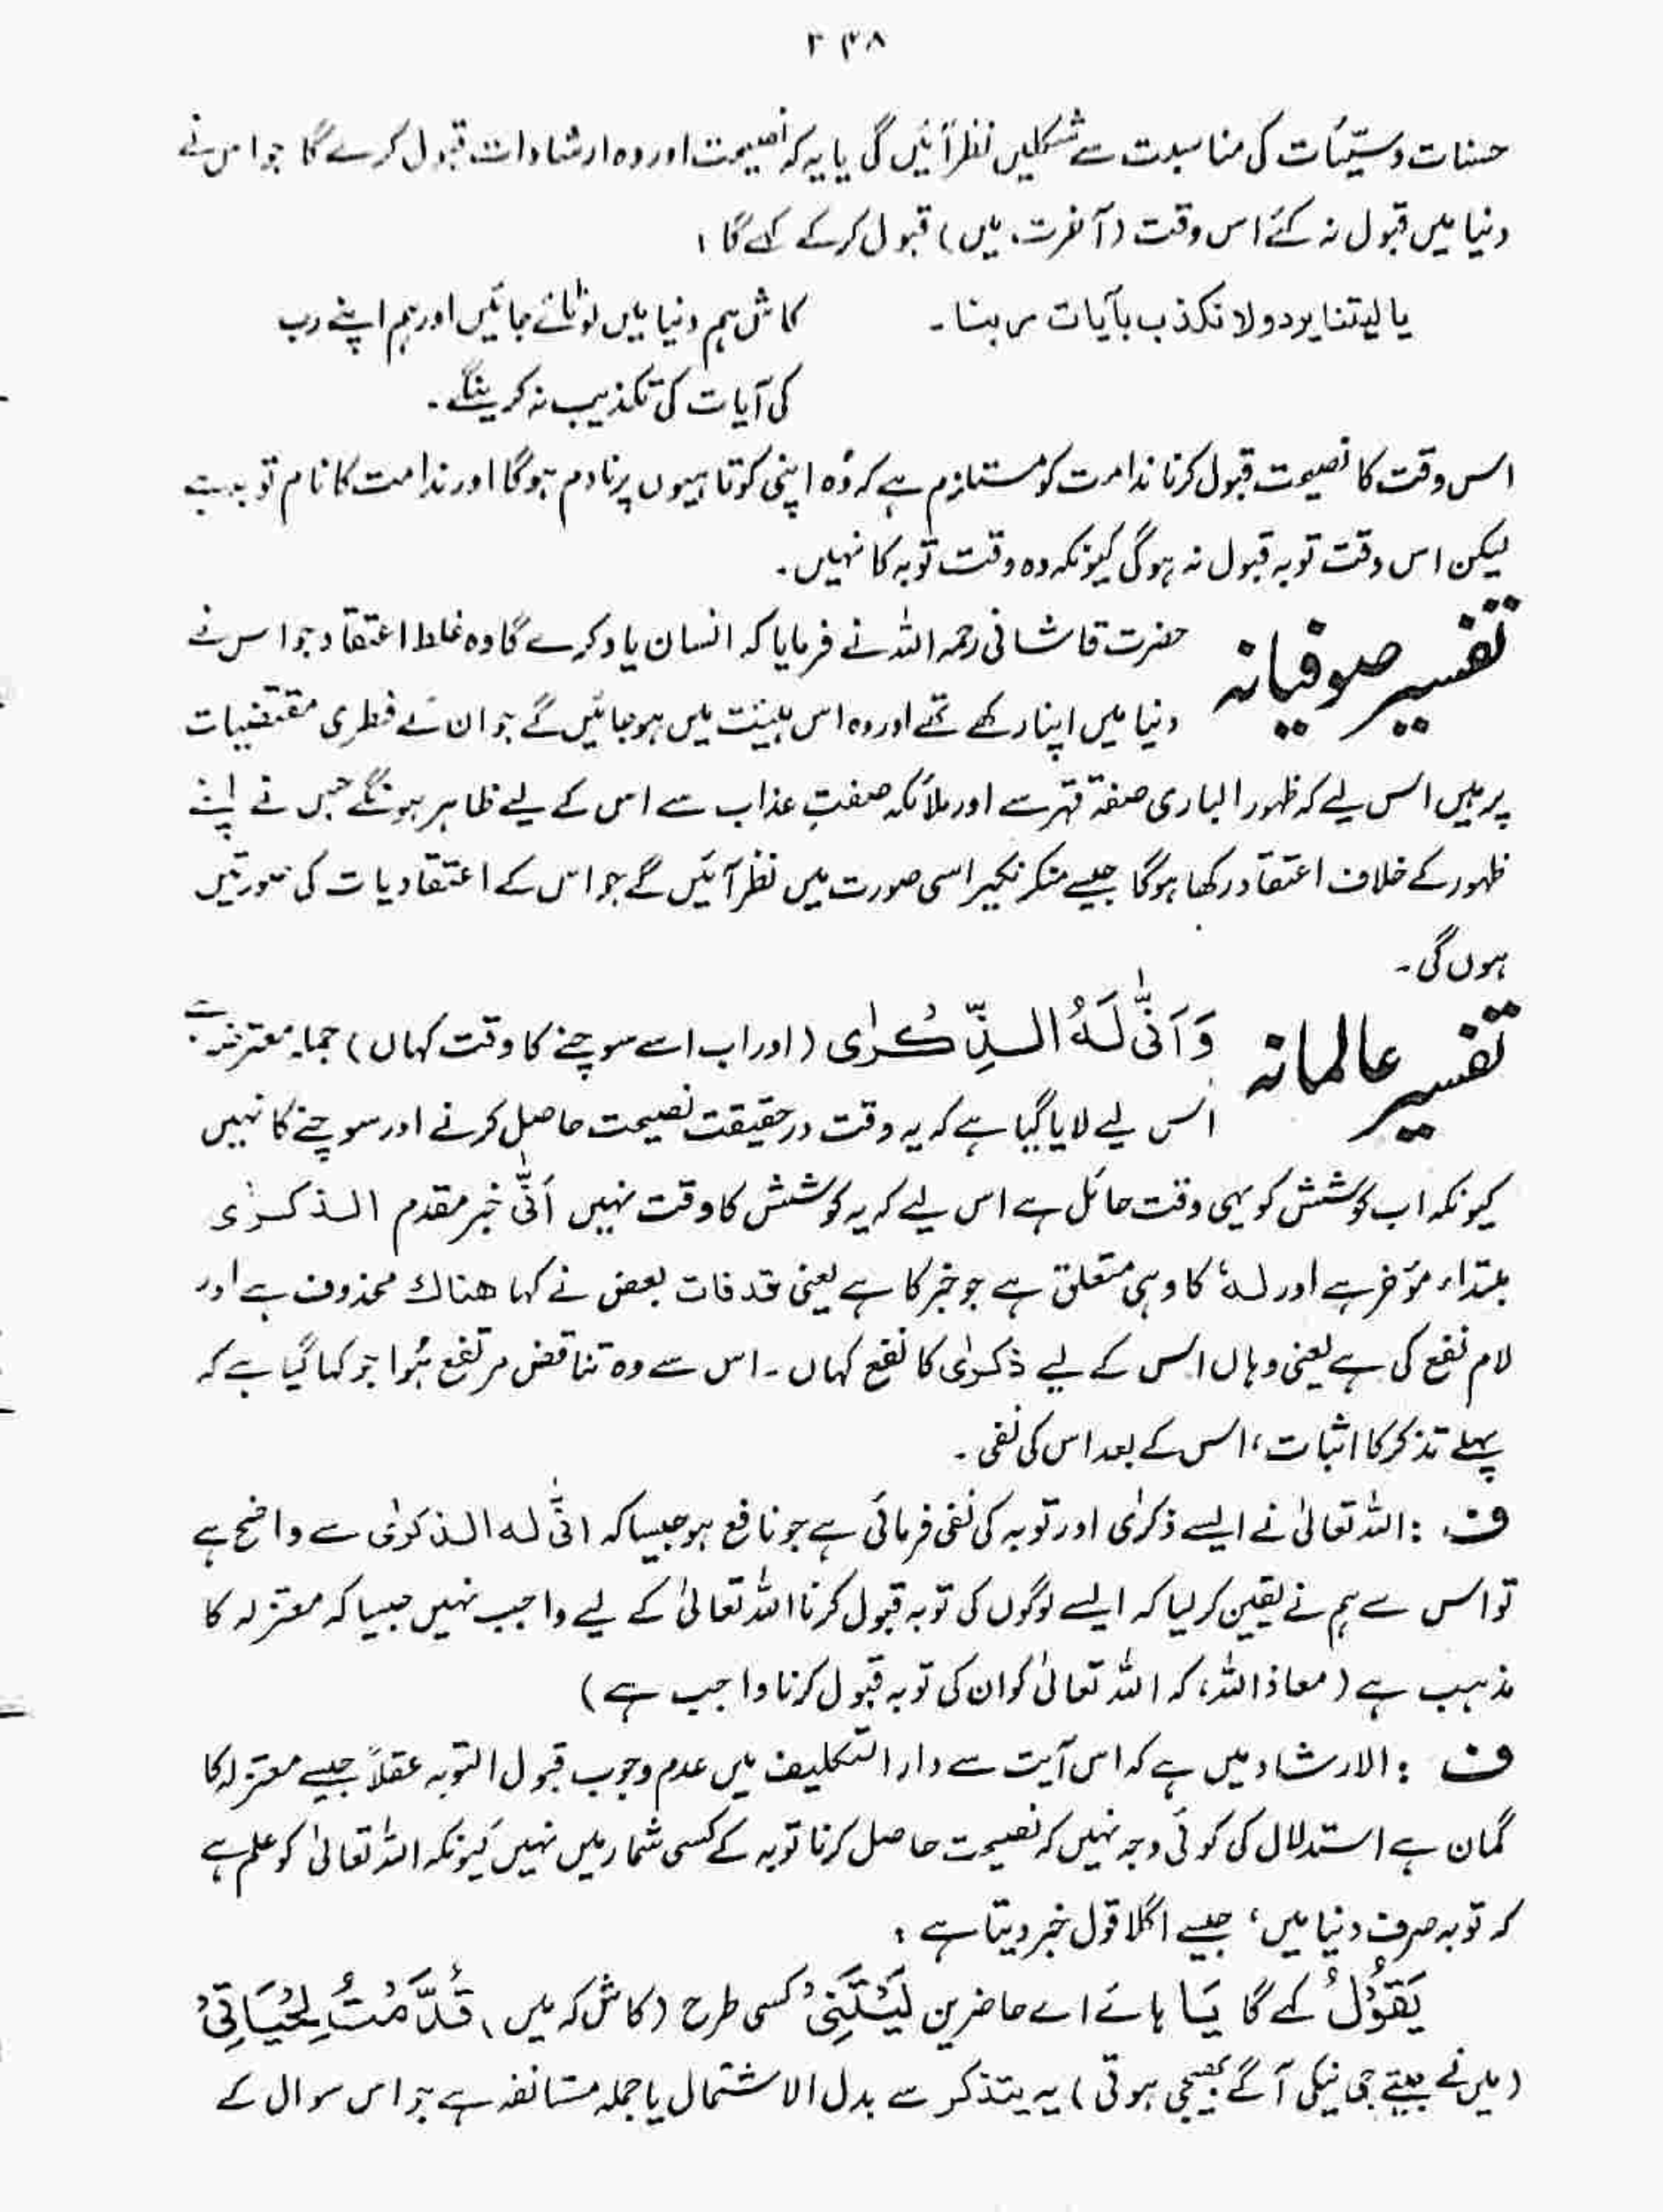 ۲۳۸
حسنات وسیّئات کی مناسبت سے شکلیں نظر آئیں گی یا یہ کہ نصیحت اور وہ ارشادات قبول کرے گا جو اس نے
دنیا میں قبول نہ کئے اس وقت (آخرت میں) قبول کرکے کہے گا :
یا لیتنا یرد ولا نکذب بآیات ربنا۔
کاش ہم دنیا میں لوٹائے جائیں اور ہم اپنے رب
کی آیات کی تکذیب نہ کرینگے۔
اس وقت کا نصیحت قبول کرنا ندامت کو مستلزم ہے کہ وُہ اپنی کوتاہیوں پر نادم ہوگا اور ندامت کا نام توبہ ہے
لیکن اس وقت توبہ قبول نہ ہوگی کیونکہ وہ وقت توبہ کا نہیں۔
تفسیر صوفیانہ
حضرت قاشانی رحمہ اللہ نے فرمایا کہ انسان یاد کرے گا وہ غلط اعتقاد جو اس نے
دنیا میں اپنا رکھے تھے اور وہ اس ہیئت میں ہوجائیں گے جو ان کے فطری مقتضیات
پر ہیں اس لیے کہ ظہور الباری صفۃ قہر سے اور ملائکہ صفتِ عذاب سے اس کے لیے ظاہر ہونگے جس نے اپنے
ظہور کے خلاف اعتقاد رکھا ہوگا جیسے منکر نکیر اسی صورت میں نظر آئیں گے جو اس کے اعتقادیات کی صورتیں
ہوں گی۔
تفسیر عالمانہ
وَاَنّٰی لَهُ الذِّکْرٰی (اور اب اسے سوچنے کا وقت کہاں) جملہ معترضہ ہے
اس لیے لایا گیا ہے کہ یہ وقت درحقیقت نصیحت حاصل کرنے اور سوچنے کا نہیں
کیونکہ اب کوشش کو یہی وقت حائل ہے اس لیے کہ یہ کوشش کا وقت نہیں اَنّٰی خبر مقدم الذکرٰی
مبتداء مؤخر ہے اور لہٗ کا وہی متعلق ہے جو خبر کا ہے یعنی قد فات بعض نے کہا هناك محذوف ہے اور
لام نفع کی ہے یعنی وہاں اس کے لیے ذکرٰی کا نفع کہاں۔ اس سے وہ تناقض مرتفع ہُوا جو کہا گیا ہے کہ
پہلے تذکر کا اثبات، اس کے بعد اس کی نفی۔
ف : اللہ تعالیٰ نے ایسے ذکرٰی اور توبہ کی نفی فرمائی ہے جو نافع ہو جیسا کہ انّٰی له الذکرٰی سے واضح ہے
تو اس سے ہم نے یقین کر لیا کہ ایسے لوگوں کی توبہ قبول کرنا اللہ تعالیٰ کے لیے واجب نہیں جیسا کہ معتزلہ کا
مذہب ہے (معاذ اللہ، کہ اللہ تعالیٰ کو ان کی توبہ قبول کرنا واجب ہے)
ف : الارشاد میں ہے کہ اس آیت سے دار التکلیف میں عدم وجوب قبول التوبہ عقلاً جیسے معتزلہ کا
گمان ہے استدلال کی کوئی وجہ نہیں کہ نصیحت حاصل کرنا توبہ کے کسی شمار میں نہیں کیونکہ اللہ تعالیٰ کو علم ہے
کہ توبہ صرف دنیا میں، جیسے اگلا قول خبر دیتا ہے :
یَقُوْلُ کہے گا یَا ہائے اے حاضرین لَیْتَنِیْ کسی طرح (کاش کہ میں) قَدَّمْتُ لِحَیَاتِیْ
(میں نے جیتے جی نیکی آگے بھیجی ہوتی) یہ یتذکر سے بدل الاشتمال یا جملہ مستانفہ ہے جو اس سوال کے